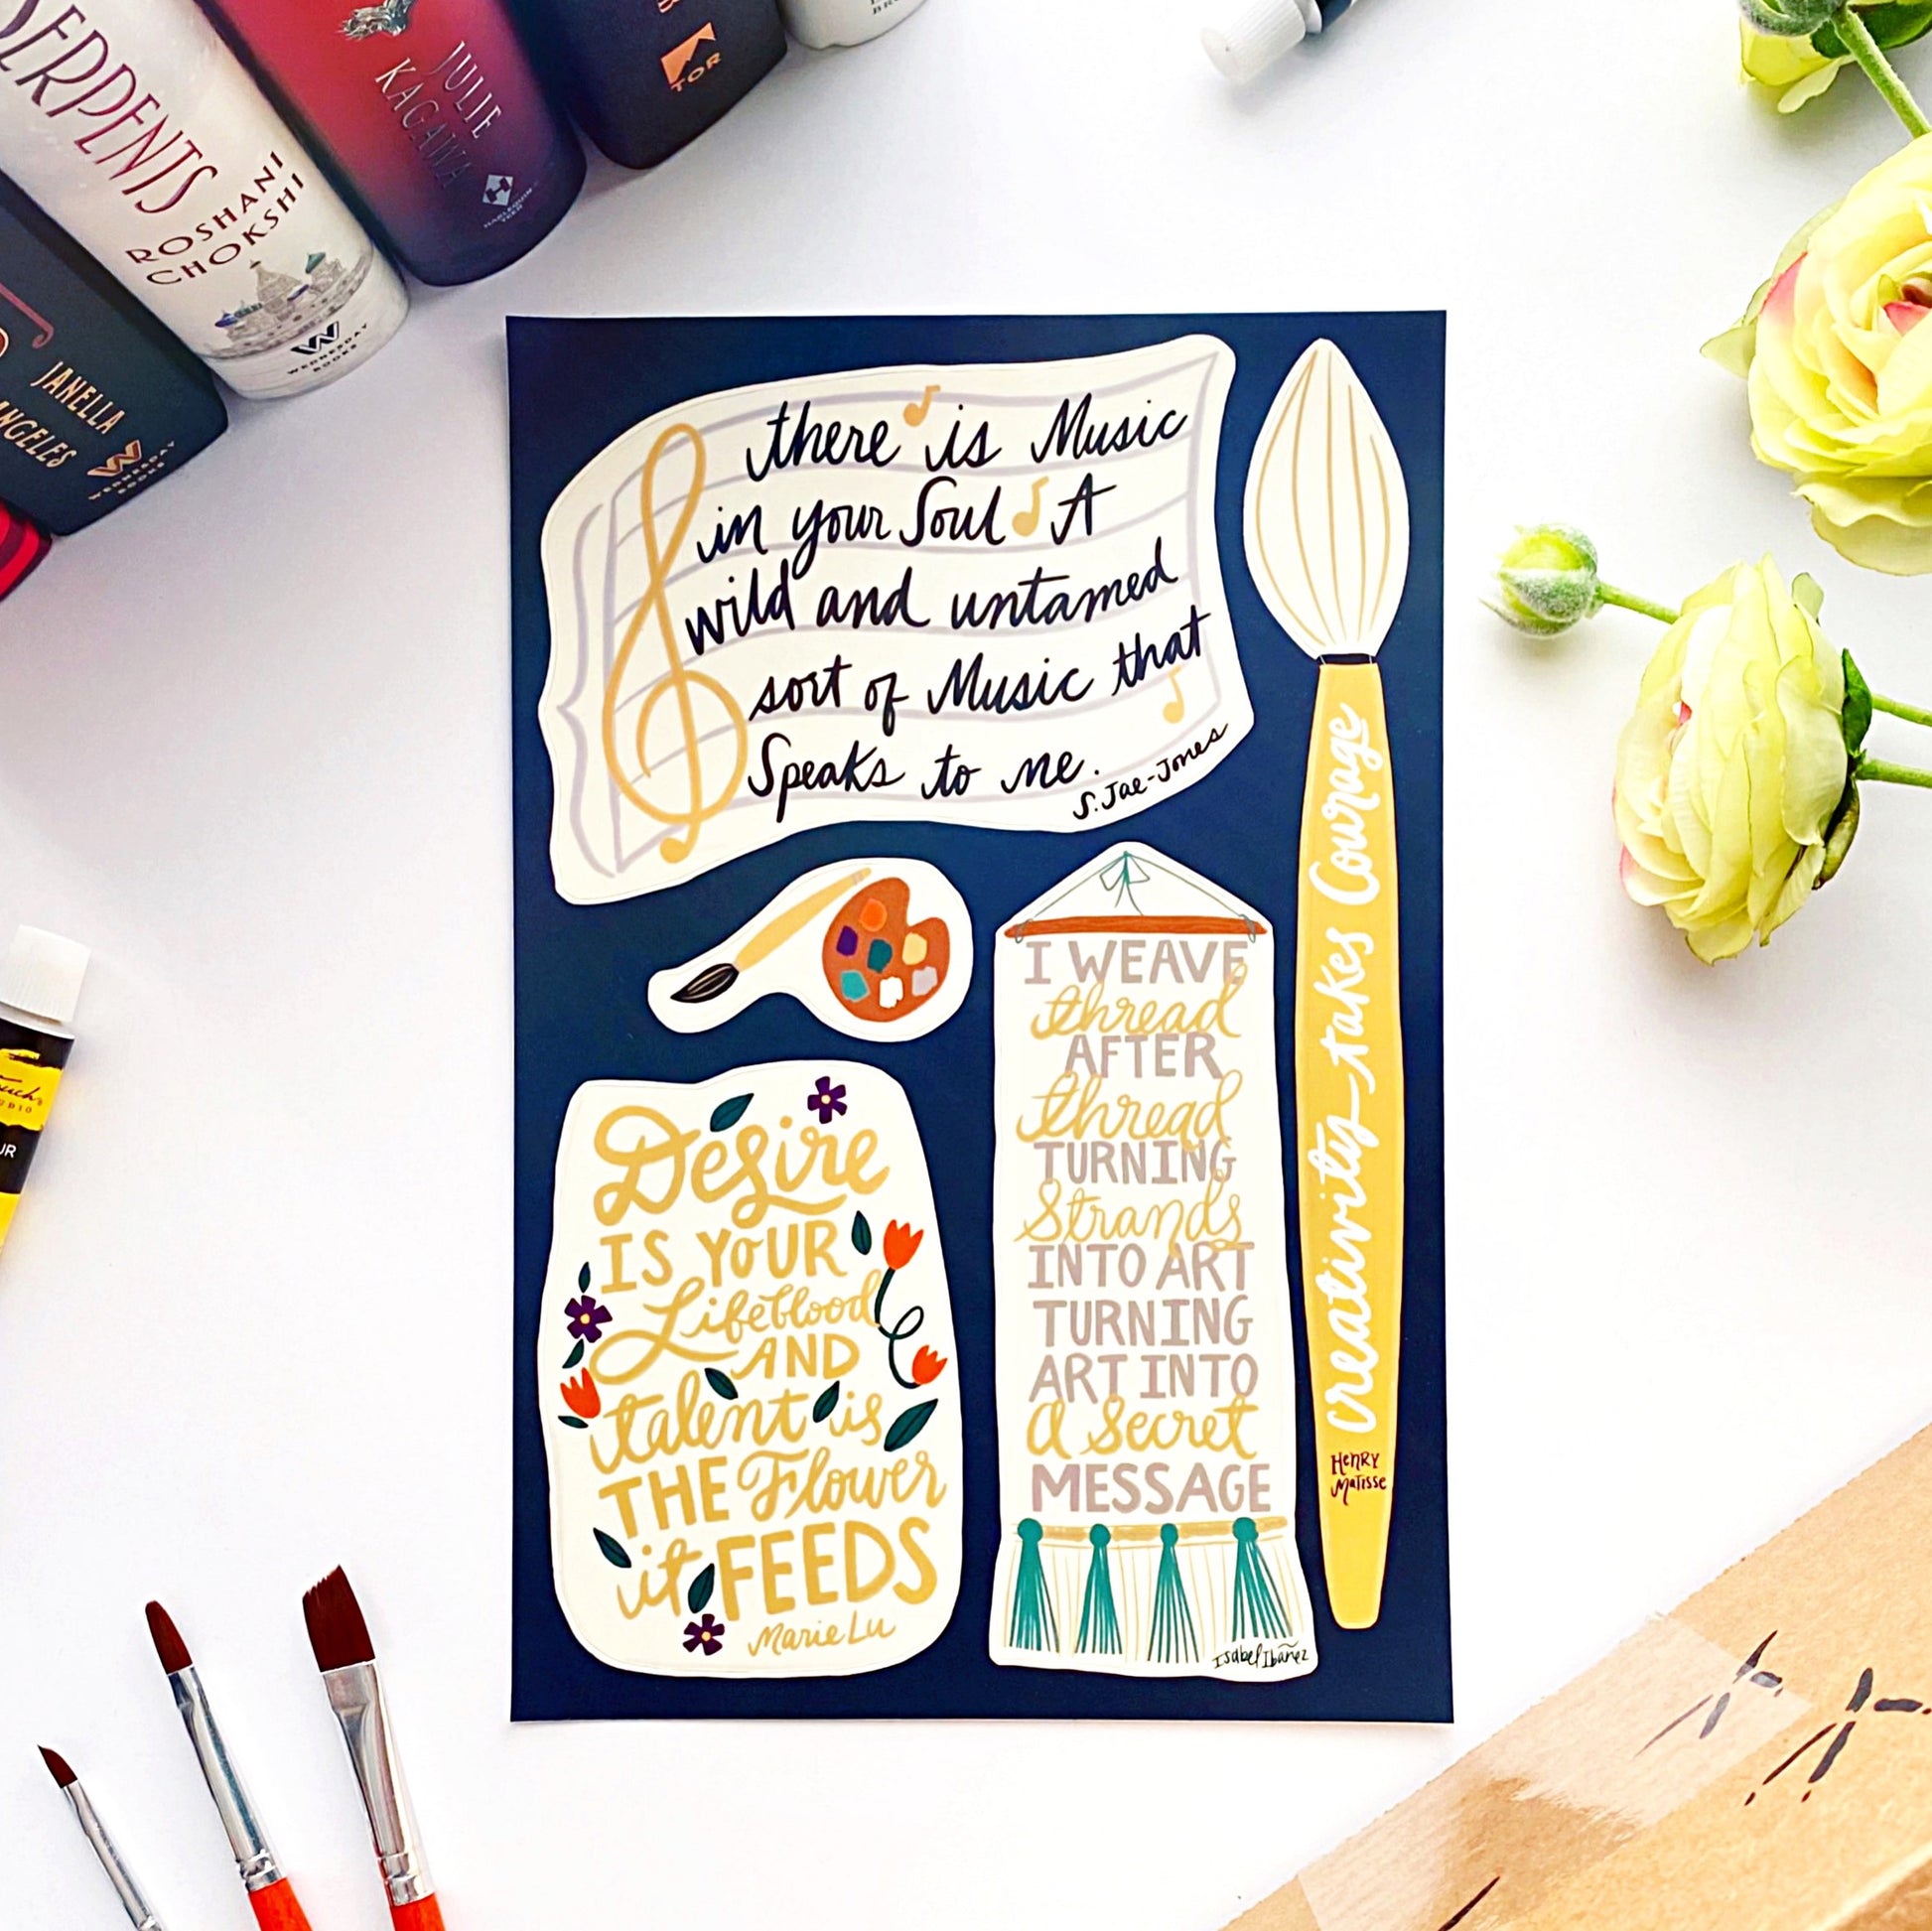 SERPENTS
ROSHANI
CHOKSHI
WEDNESDAY
BOOKS
JULIE
KAGAWA
HARLEQUIN
TEEN
TOR
JANELLA
ANGELES
WEDNESDAY
BOOKS
there is Music
in your Soul A
wild and untamed
sort of Music that
Speaks to me.
S. Jae-Jones
creativity takes Courage
HENRY
MATISSE
I WEAVE
thread
AFTER
thread
TURNING
Strands
INTO ART
TURNING
ART INTO
a Secret
MESSAGE
Isabel Ibañez
Desire
IS YOUR
Lifeblood
AND
talent is
THE Flower
it FEEDS
Marie Lu